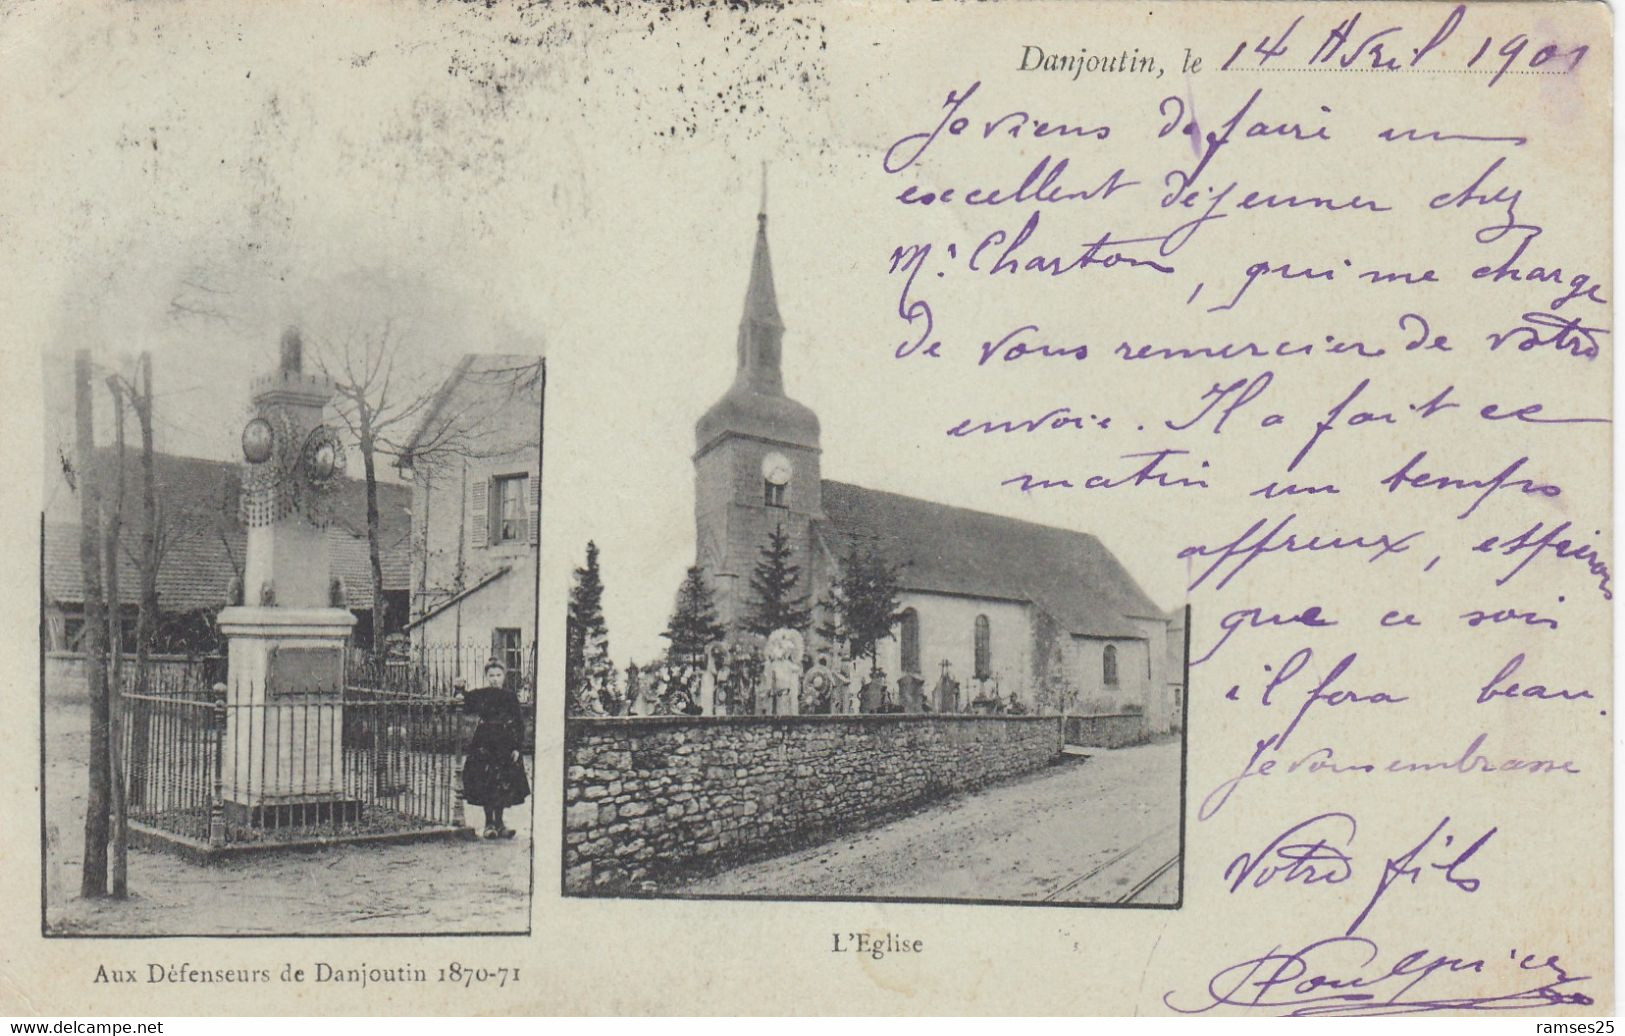 Danjoutin, le 14 Avril 1901
Je viens de faire un
excellent déjeuner chez
Mr Charton, qui me charge
de vous remercier de votre
envoie. Il a fait ce
matin un temps
affreux, espérons
que ce soir
il fera beau.
Je vous embrasse
Votre fils
Aux Défenseurs de Danjoutin 1870-71
L'Eglise
www.delcampe.net
ramses25